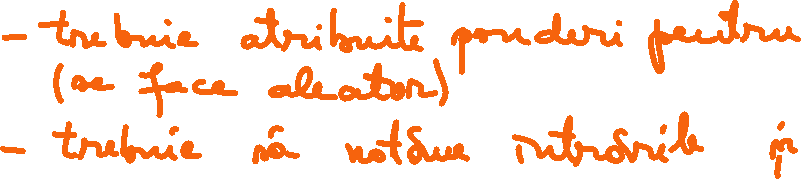 - trebuie atribuite ponderi pentru
(se face aleator)
- trebuie să notăm intrările și